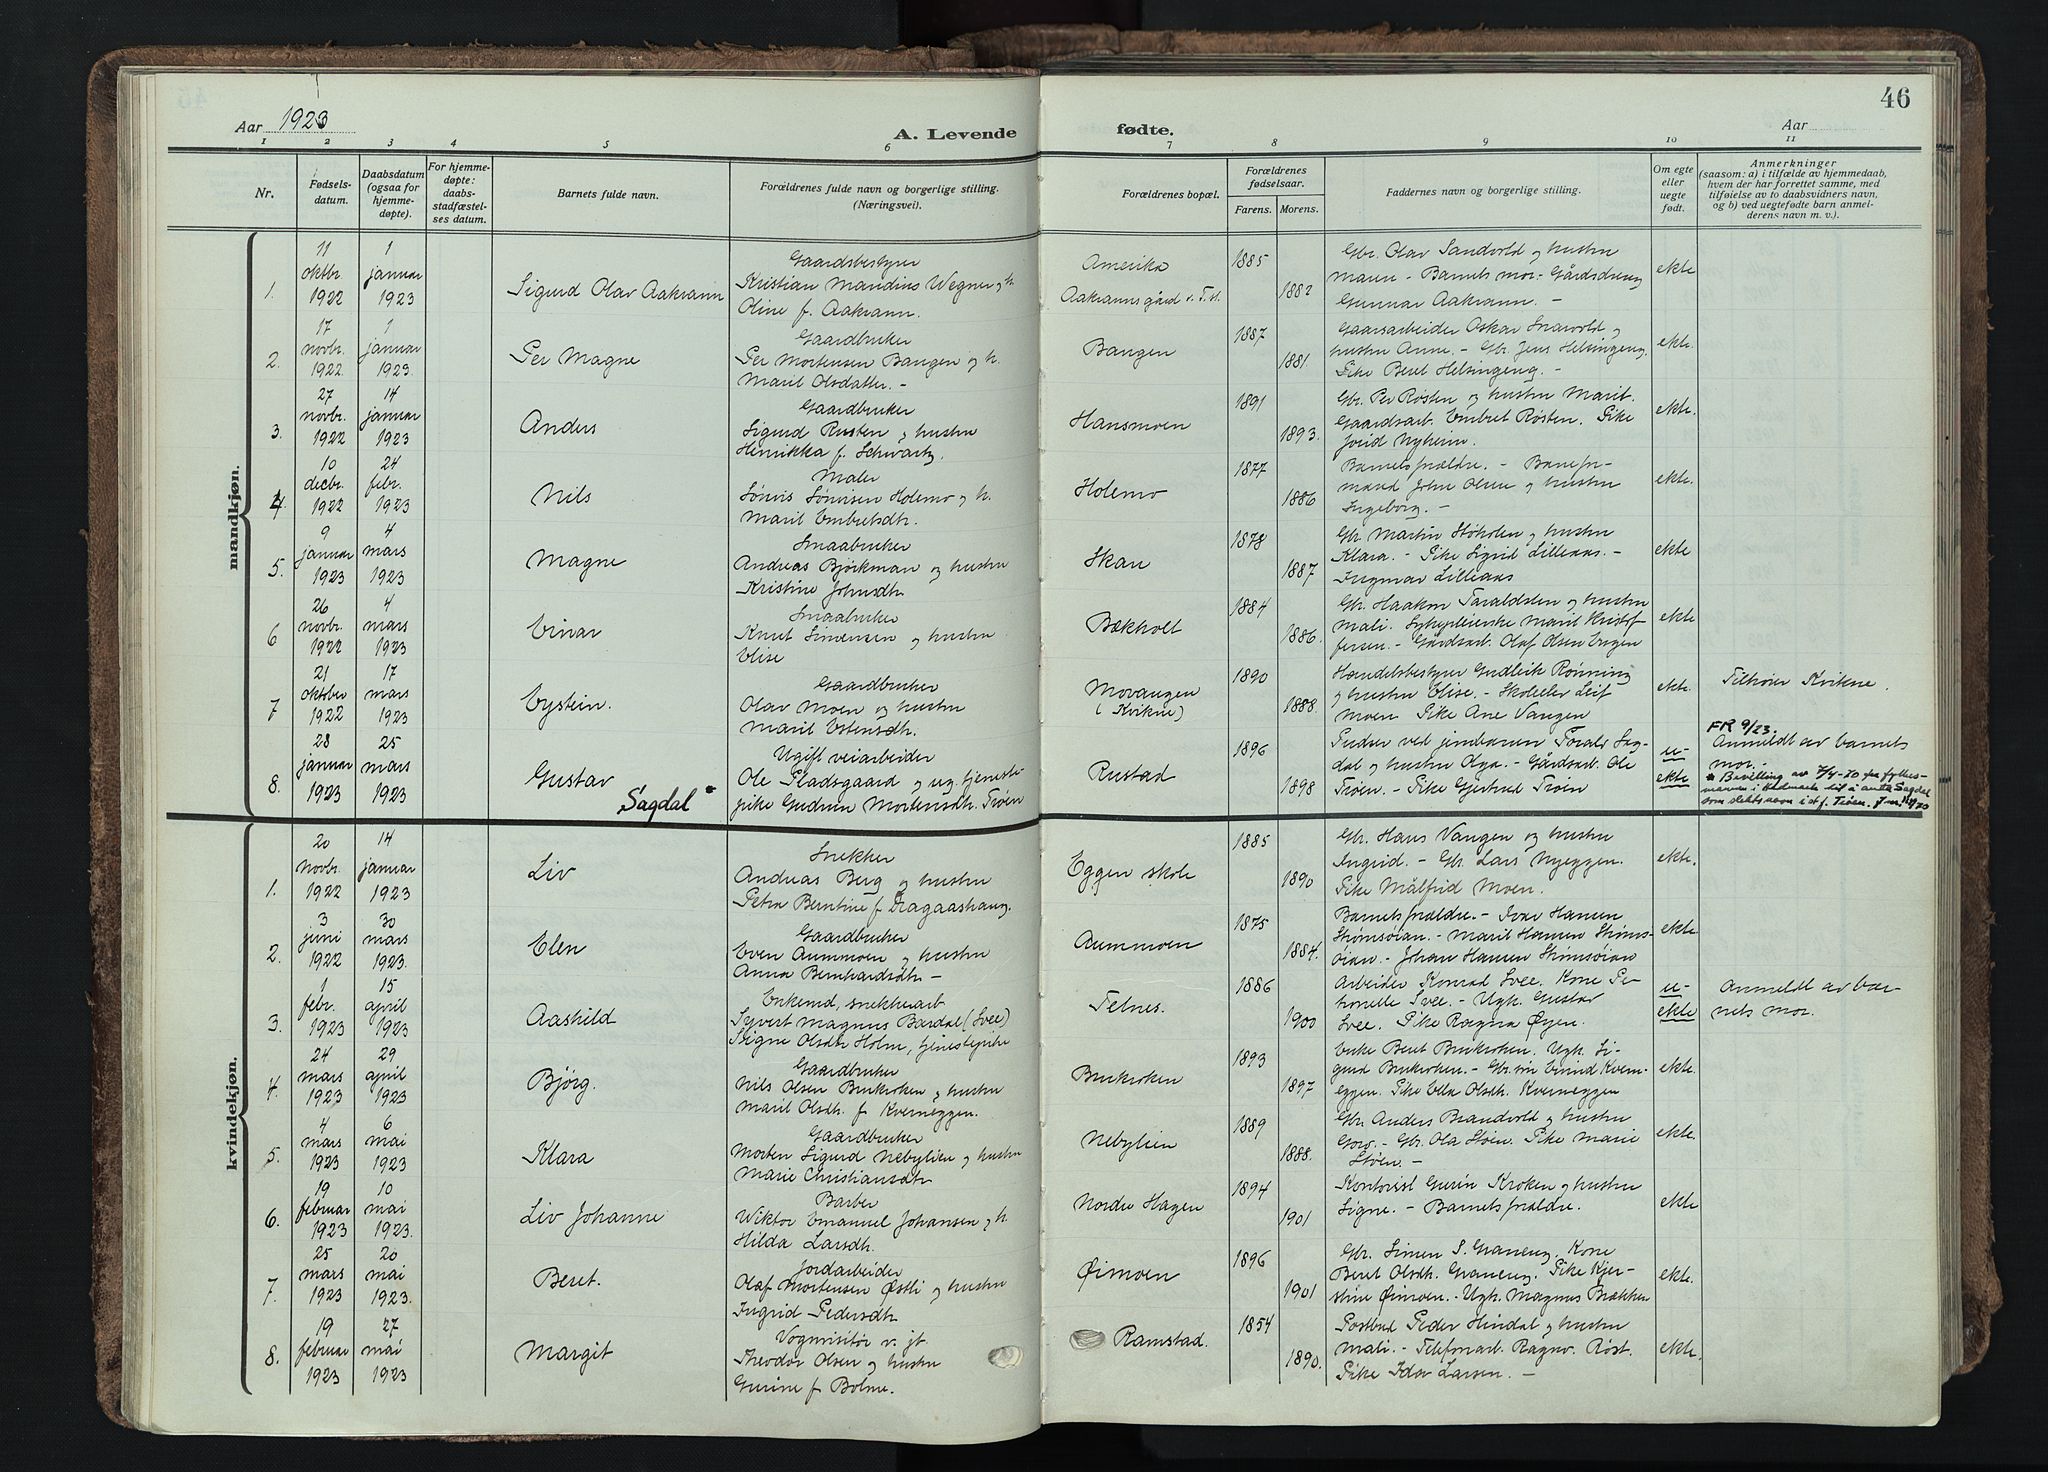 46
Aar 1923
A. Levende
fødte.
Aar
1 2 3 4 5 6 7 8 9 10 11
Nr.
Fødsels-
datum.
Daabsdatum
(ogsaa for
hjemme-
døpte).
For hjemme-
døpte:
daabs-
stadfæstel-
ses datum.
Barnets fulde navn.
Forældrenes fulde navn og borgerlige stilling.
(Næringsvei).
Forældrenes bopæl.
Forældrenes
fødselsaar.
Farens. Morens.
Faddernes navn og borgerlige stilling.
Om egte
eller
uegte
født.
Anmerkninger
(saasom: a) i tilfælde av hjemmedaab,
hvem der har forrettet samme, med
tilføielse av to daabsvidners navn,
og b) ved uegtefødte barn anmel-
derens navn m. v.).
mandkjøn.
1.
11
oktbr.
1922
1
januar
1923
Sigurd Olav Aakrann
Gaardsbestyrer
Kristian Mandius Wegner og h.
Oline f. Aakrann.
Amerika
Aakranns gård v. T. st.
1885
1882
Gbr. Olav Sandvold og hustru
Maren - Barnets mor. - Gårdsdreng
Gunnar Aakrann. -
ekte
2.
17
novbr.
1922
1
januar
1923.
Per Magne
Gaardbruker
Per Mortensen Bangen og h.
Marit Olsdatter. -
Bangen
1887
1881.
Gaarsarbeider Oskar Snarvold og
hustru Anne. - Gbr. Jens Helsingeng.
Pike Beret Helsingeng. -
ekte.
3.
27
novbr.
1922
14
januar
1923
Anders
Gaardbruker
Sigurd Rusten og hustru
Henrikka f. Schwartz.
Hansmoen
1891
1893.
Gbr. Per Røsten og hustru Marit.
Gaardsarb. Embret Røsten. Pike
Jorid Nyheim.
ekte.
4
10
decbr.
1922
24
febr.
1923
Nils
Maler
Sønvis Sønvisen Holemo og h.
Marit Embretsdtr.
Holemo
1877
1886
Barnets forældre. - Banefor-
mand John Olsen og hustru
Ingeborg. -
ekte.
5.
9
januar
1923
4
mars
1923
Magne
Smaabruker
Andreas Bjørkman og hustru
Kristine Johnsdtr.
Skan
1878
1887
Gbr. Martin Støholen og hustru
Klara. - Pike Sigrid Lilleaas. -
Ingmar Lilleaas
ekte
6
26
novbr.
1922
4
mars
1923
Einar
Smaabruker
Knut Simensen og hustru
Elise
Bækholt
1884
1886.
Gbr. Haakon Taraldsen og hustru
Mali. Sykepleierske Marit Kristof
fersen. - Gårdsarb. Olaf Olsen Engen
ekte
7
21
oktober
1922
17
mars
1923
Eystein.
Gaardbruker
Olav Moen og hustru
Marit Estensdtr.
Movangen
(Kvikne)
1890
1888.
Handelsbestyrer Gudleik Rønning
og hustru Elise. - Skoleelev Leif
Moen Pike Ane Vangen
ekte.
Tilhører Kvikne.
8.
28
januar
1923
25
mars
1923
Gustav
Sagdal *
Ugift veiarbeider
Ole Pladsgaard og ug. tjeneste-
pike Gudrun Mortensdtr. Trøen
Rustad
1896
1898
Pudser ved jernbanen Toralv Sag-
dal og hustru Olga. - Gårdsarb. Ole
Trøen. - Pike Gjertrud Trøen
u-
ekte
FR 9/23.
Anmeldt av barnets
mor. -
* Bevilling av 7/4-70 fra fylkes-
mannen i Hedmark til å anta Sagdal
som slektsnavn i st. f. Trøen.
kvindekjøn.
1.
20
novbr.
1922
14
januar
1923
Liv
Snekker
Andreas Berg og hustru
Petra Berntine f. Dragaashaug.
Eggen skole
1885
1890
Gbr. Hans Vangen og hustru
Ingrid. - Gbr. Lars Nyeggen.
Pike Målfrid Moen.
ekte.
2.
3
juni
1922
30
mars
1923.
Elen
Gaardbruker
Even Aummoen og hustru
Anna Bernhardsdtr -
Aummoen
1875
1884.
Barnets forældre. - Ivar Hansen
Strømsøian. - Marit Hansen Strøms-
øian. - Johan Hansen Strømsøian
ekte.
3.
1
febr.
1923
15
april
1923
Aashild
Enkemd, snekkerarb.
Syvert Magnus Bardal (Svee)
Signe Olsdtr Holm, tjenestepike
Telnes.
1886
1900
Arbeider Konrad Svee. Kone Pe-
tronelle Svee. - Ugk. Gustav
Svee. Pike Ragna Øyen.
u-
ekte
Anmeldt av bar-
nets mor.
4.
24
mars
1923
29
april
1923
Bjørg.
Gaardbruker
Nils Olsen Brukroken og hustru
Marit Olsdtr. f. Kverneggen.
Brukroken
1893
1897
Enke Beret Brukroken. Ugk. Si-
gurd Brukroken. - Gbr. søn Eivind Kvern-
eggen. Pike Elen Olsdtr. Kverneggen
ekte.
5.
4
mars
1923
6
mai
1923
Klara
Gaardbruker
Morten Sigurd Nebylien og hustru
Marie Christiansdtr
Nebylien
1889
1888.
Gbr. Anders Brandvold og hustru
Goro. - Gbr. Ola Støen. Pike Marie
Støen. -
ekte.
6.
19
februar
1923
10
mai
1923.
Liv Johanne
Barber
Wiktor Emanuel Johansen og h.
Hilda Larsdtr.
Nordre Hagen
1894
1901
Kontorist Gurin Kroken og hustru
Signe. - Barnets forældre.
ekte
7.
25
mars
1923
20
mai
1923.
Beret.
Jordarbeider
Olaf Mortensen Østli og hustru
Ingrid Pedersdtr
Øimoen
1896
1901
Gbr. Simen S. Graneng. Kone
Beret Olsdtr. Graneng. Pike Kjer-
stine Øimoen. - Ugk. Magnus Brækken
ekte.
8.
19
februar
1923
27
mai
1923
Margit
Vognvisitør v. jb.
Theodor Olsen og hustru
Gurine f. Bolme.
Ramstad.
1854
1890.
Postbud Peder Hindal og hustru
Mali. - Telefonarb. Ragnv. Røst.
Pike Ida Larsen. -
ekte.